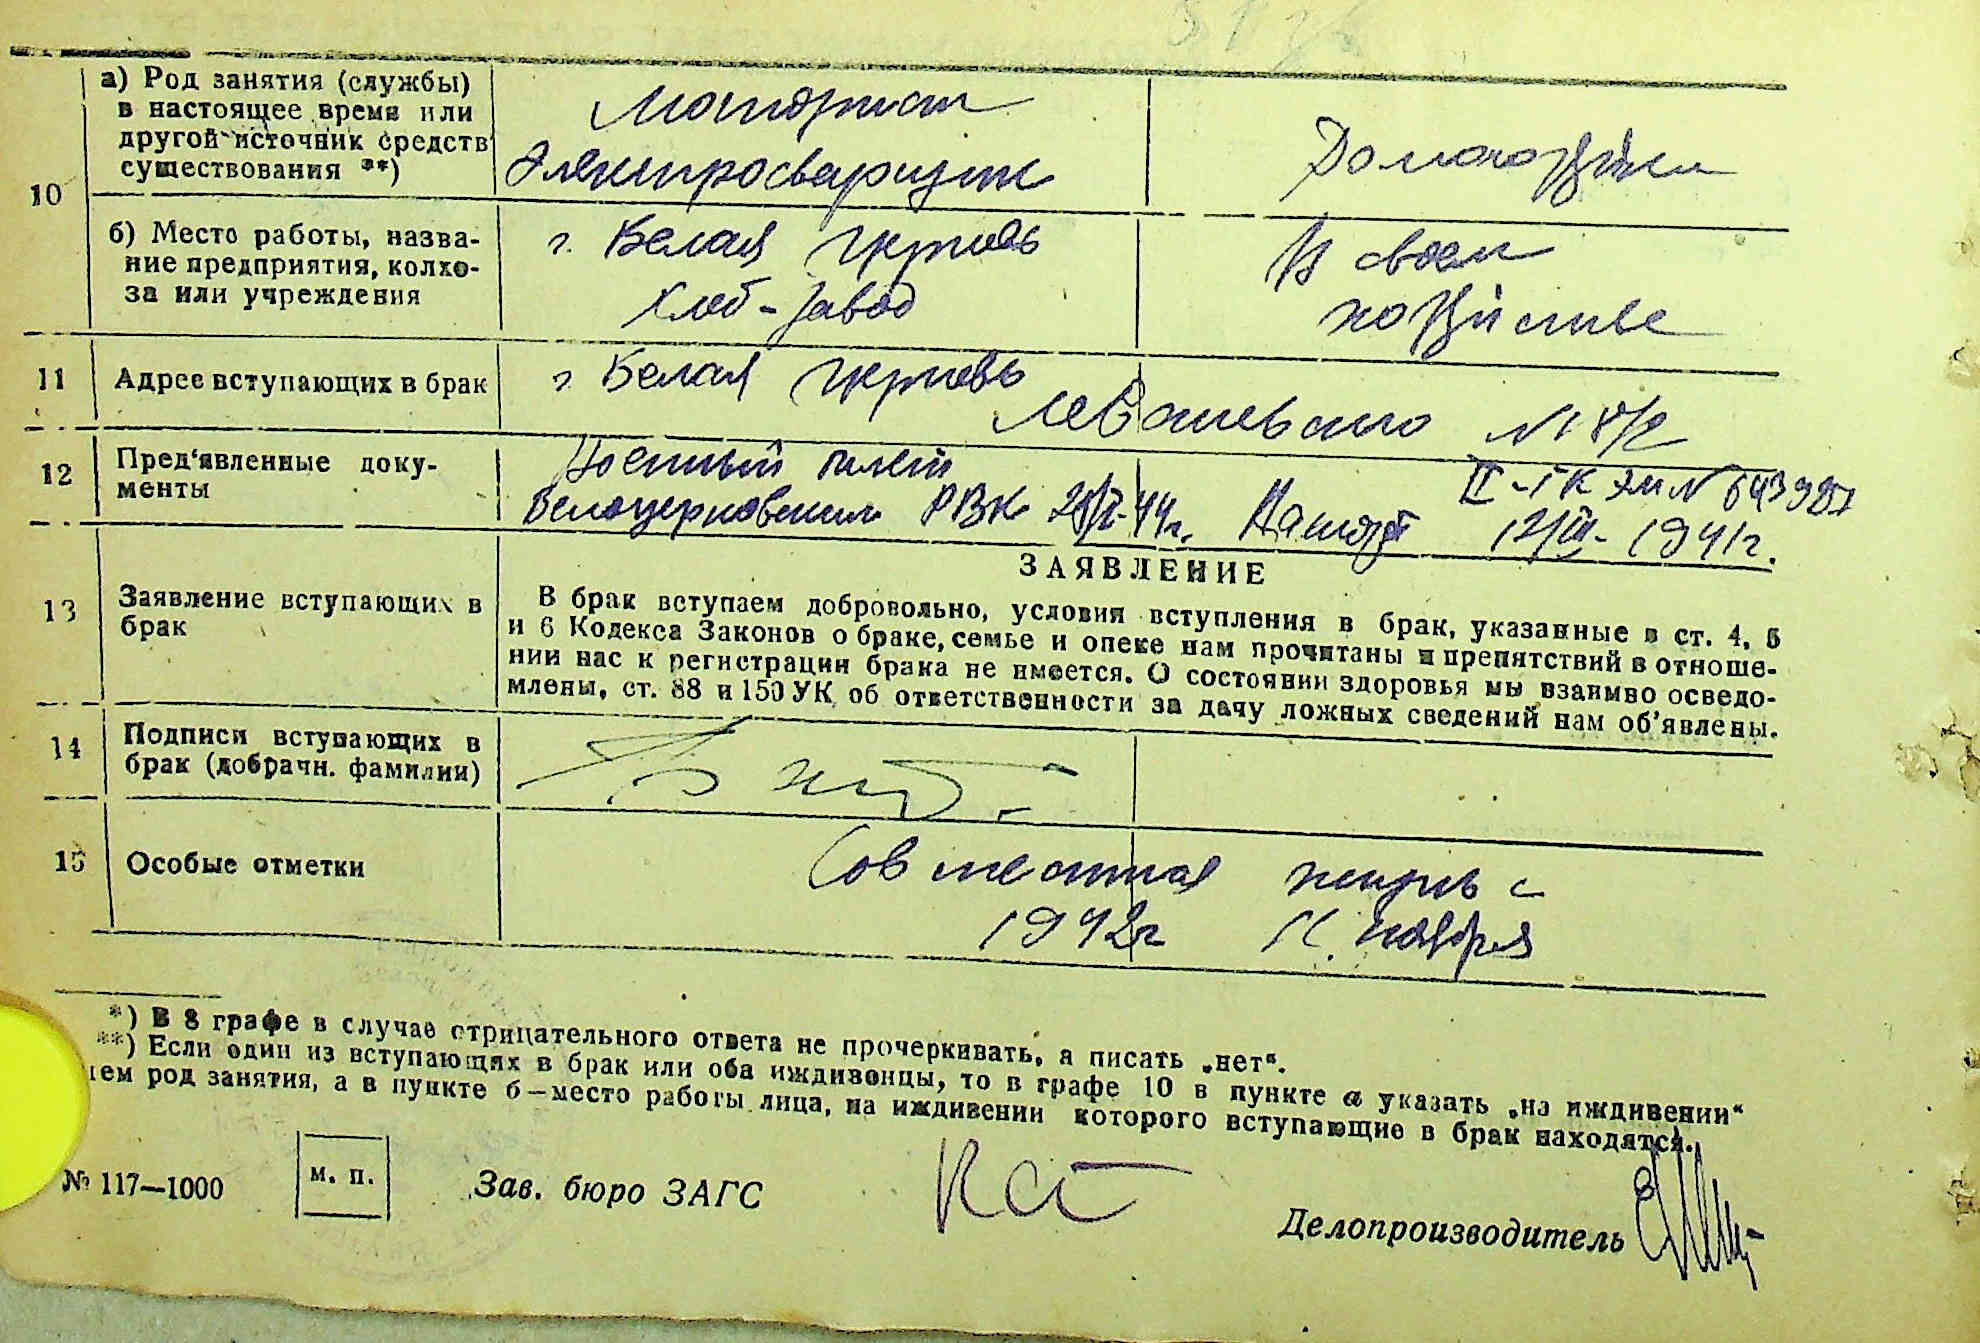 10
а) Род занятия (службы)
в настоящее время или
другой источник средств
существования **)
Моторист
Электросварщик
Домохозяйка
б) Место работы, назва-
ние предприятия, колхо-
за или учреждения
г. Белая Церковь
Хлеб-завод
В своем
хозяйстве
11
Адрес вступающих в брак
г Белая Церковь
12
Пред'явленные доку-
менты
Военный билет
Белоцерковским РВК
Паспорт
1941г.
13
Заявление вступающих в
брак
ЗАЯВЛЕНИЕ
В брак вступаем добровольно, условия вступления в брак, указанные в ст. 4, 5
и 6 Кодекса Законов о браке, семье и опеке нам прочитаны и препятствий в отноше-
нии нас к регистрации брака не имеется. О состоянии здоровья мы взаимво осведо-
млены, ст. 88 и 150 УК об ответственности за дачу ложных сведений нам об'явлены.
14
Подписи вступающих в
брак (добрачн. фамилии)
15
Особые отметки
Совместная жизнь с
1942г ноября
*) В 8 графе в случае отрицательного ответа не прочеркивать, а писать „нет“.
**) Если один из вступающих в брак или оба иждивенцы, то в графе 10 в пункте а указать „на иждивении“
чем род занятия, а в пункте б—место работы лица, на иждивении которого вступающие в брак находятся.
№ 117—1000
м. п.
Зав. бюро ЗАГС
Делопроизводитель